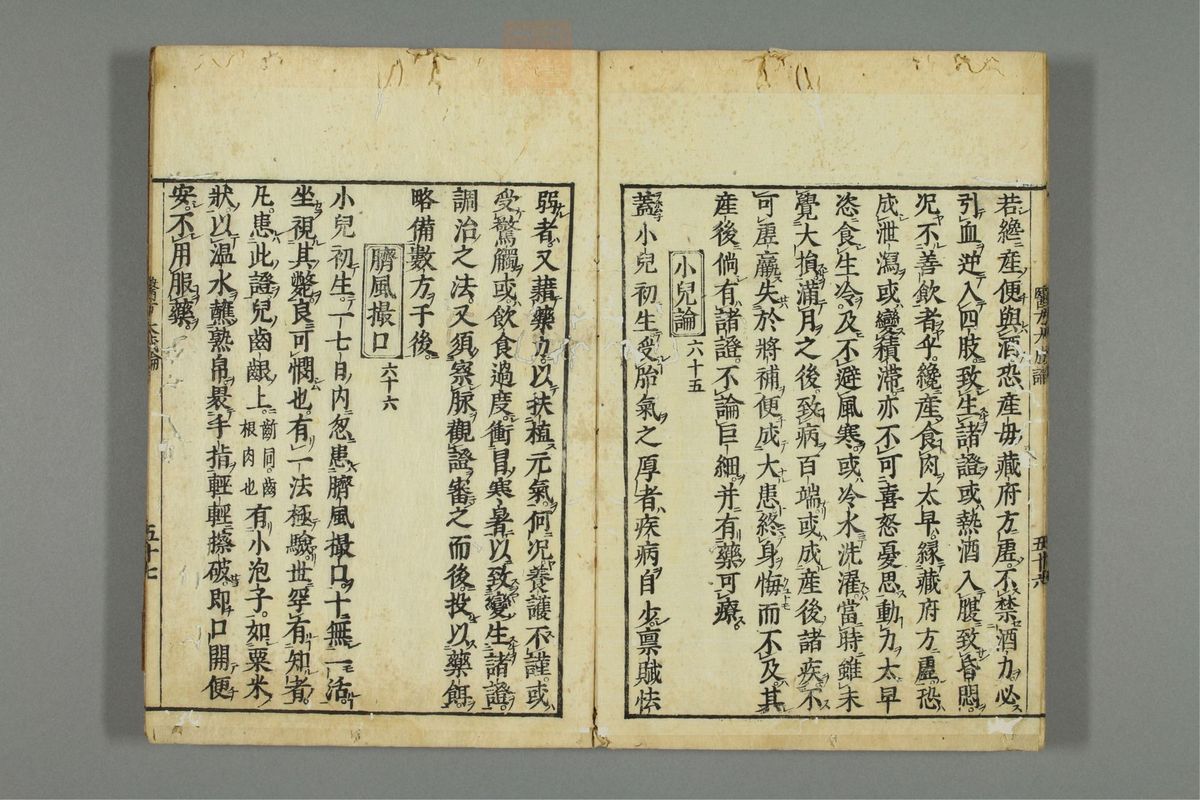 若纔産便與酒恐産毋藏府方虛不禁酒力必
引血迸入四肢致生諸證或熱酒入腹致昏悶
况不善飲者乎纔産食肉太早緣藏府方虛恐
成泄瀉或變積滯亦不可喜怒憂思動力太早
恣食生冷及不避風寒或冷水洗濯當時雖未
覺大損滿月之後致病百端或成産後諸疾不
可虛羸失於將補便成大患終身悔而不及其
産後倘有諸證不論巨細并有藥可療
小兒論 六十五
蓋小兒初生受胎氣之厚者疾病自少禀賦怯
五十六
弱者又藉藥力以扶植元氣何况養護不謹或
受驚觸或飲食過度衝冒寒暑以致變生諸證
調治之法又須察脉觀證審之而後投以藥餌
略備數方于後
臍風撮口 六十六
小兒初生一七日内忽患臍風撮口十無一活
坐視其斃良可憫也有一法極驗世罕有知者
凡患此證兒齒齦上齗同齒根肉也有小泡子如粟米
狀以溫水蘸熟帛裹手指輕輕擦破即口開便
安不用服藥
五十七